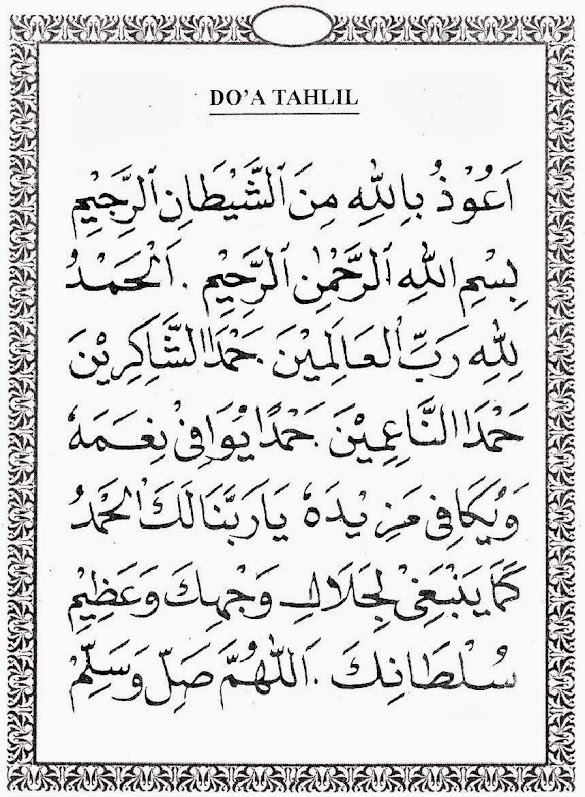 DO'A TAHLIL
اَعُوْذُ بِاللهِ مِنَ ٱلشَّيْطَانِ ٱلرَّجِيْمِ
بِسْمِ اللهِ ٱلرَّحْمٰنِ ٱلرَّحِيْمِ. اَلْحَمْدُ
لِلّٰهِ رَبِّ ٱلْعَالَمِيْنَ. حَمْدَ الشَّاكِرِيْنَ
حَمْدَ النَّاعِمِيْنَ. حَمْدًا يُوَافِيْ نِعَمَهُ
وَيُكَافِئُ مَزِيْدَهُ يَارَبَّنَا لَكَ الْحَمْدُ
كَمَا يَنْبَغِيْ لِجَلَالِ وَجْهِكَ وَعَظِيْمِ
سُلْطَانِكَ. اَللّٰهُمَّ صَلِّ وَسَلِّمْ